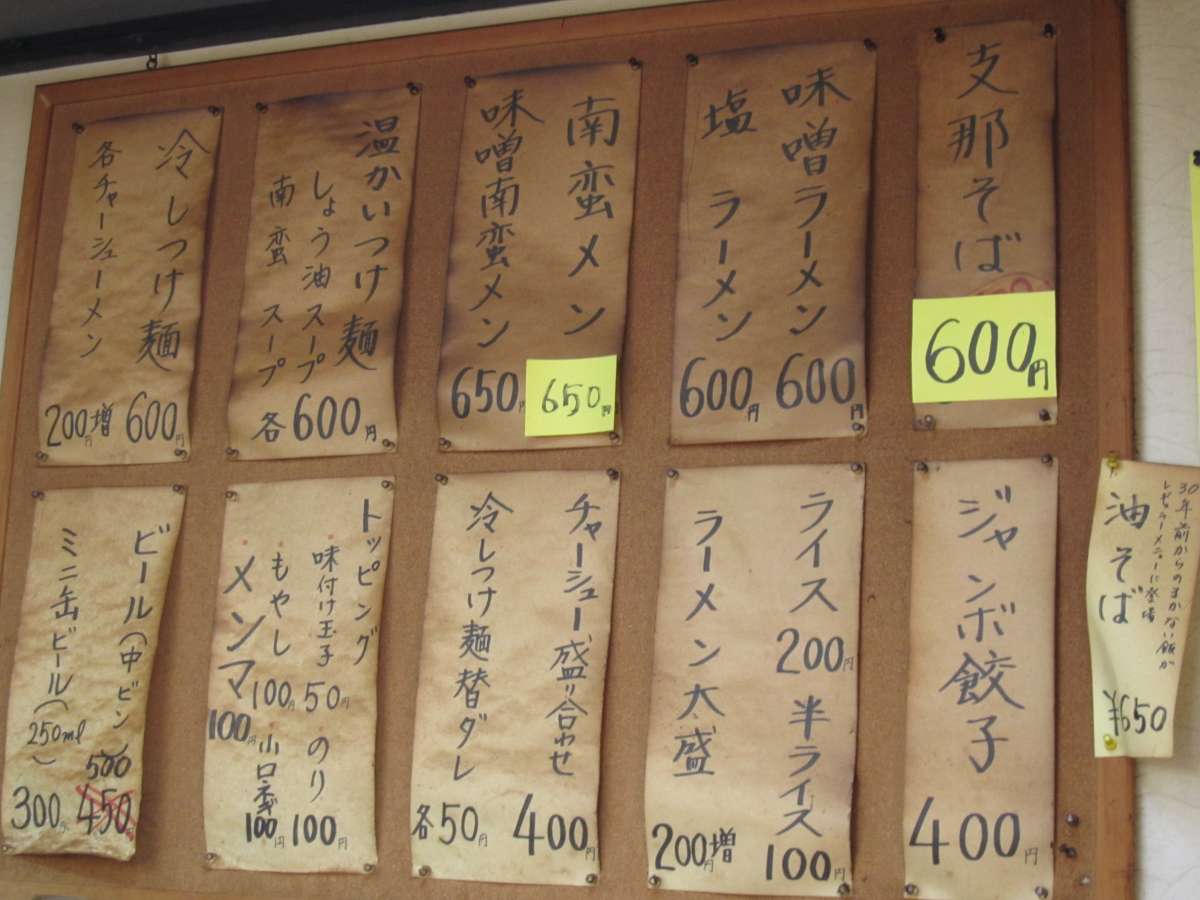 支那そば
600円
味噌ラーメン 600円
塩 ラーメン 600円
南蛮メン
650円
味噌南蛮メン 650円
温かいつけ麺
しょう油スープ
南蛮 スープ
各600円
冷しつけ麺 600円
各チャーシューメン 200円増
30年前からのまかない飯が
レギュラーメニューに登場
油そば ¥650
ジャンボ餃子 400円
ライス 200円 半ライス 100円
ラーメン大盛 200円増
チャーシュー盛り合わせ 400円
冷しつけ麺替ダレ 各50円
トッピング
味付け玉子 50円 のり 100円
もやし 100円 小口ネギ 100円
メンマ 100円
ビール(中ビン) 500 450
ミニ缶ビール(250ml) 300円